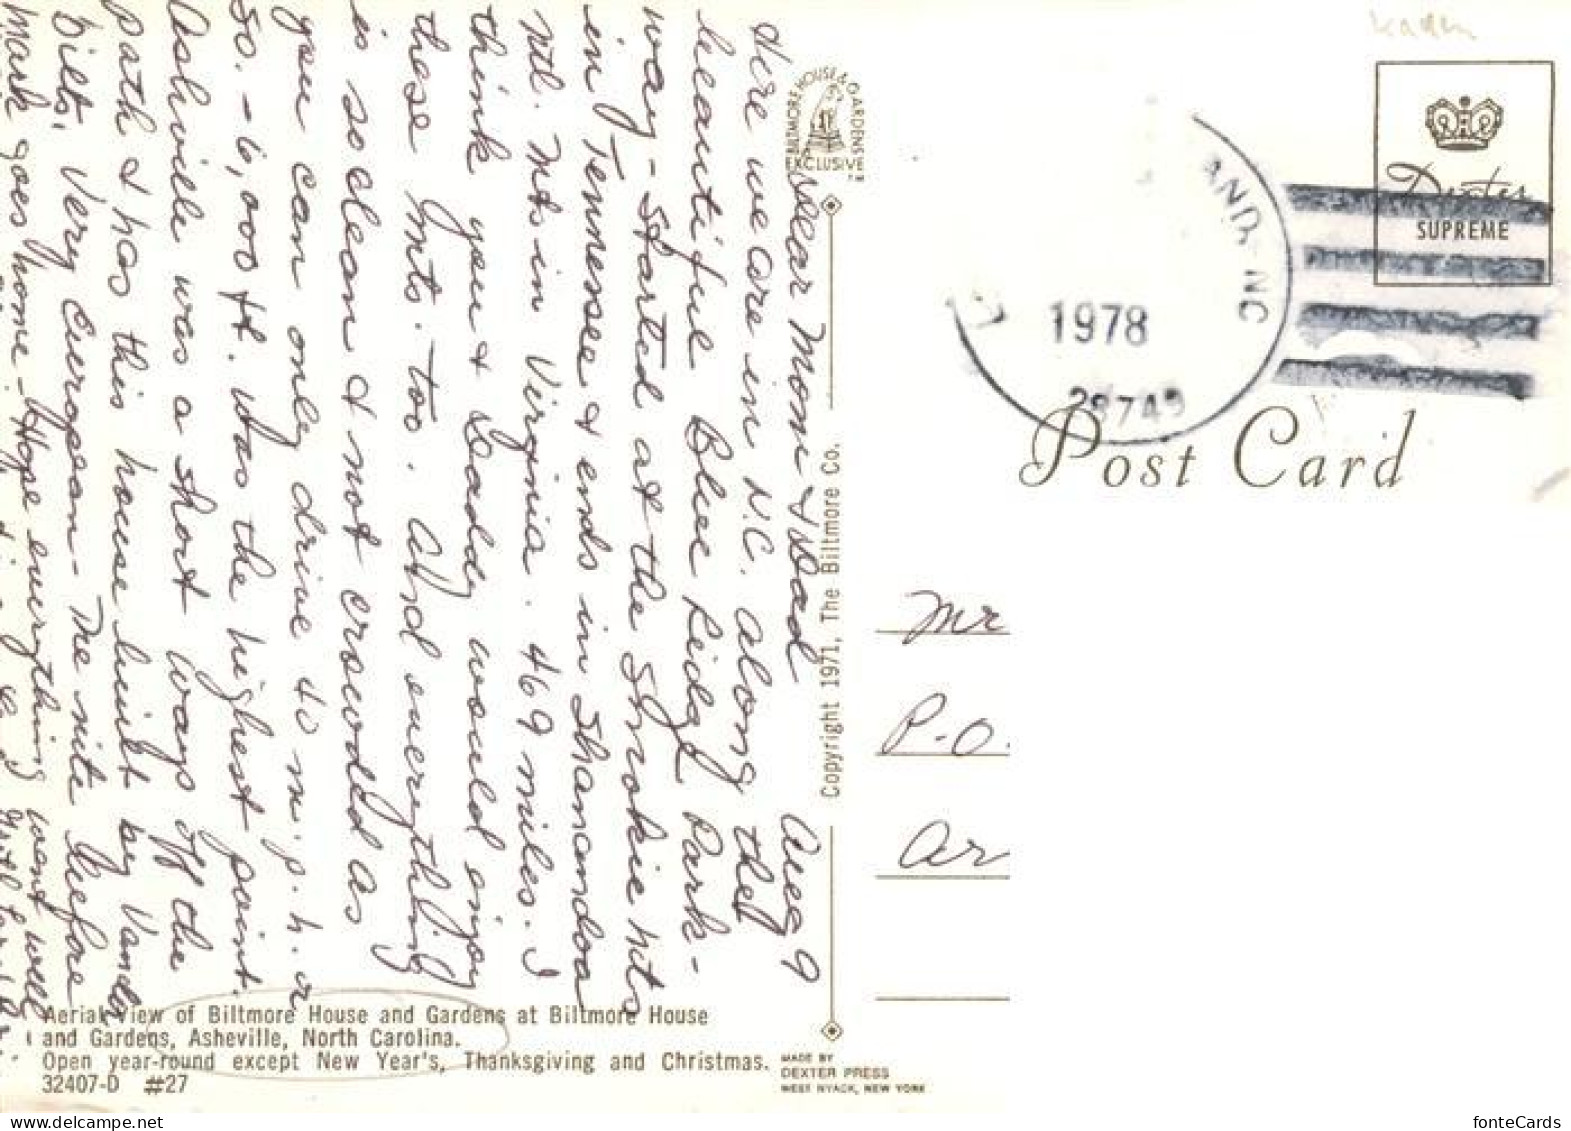 Aug 9
Dear Mom & Dad
Here we are in N.C. along the
beautiful Blue Ridge Park-
way - Started at the Smokie Mts
in Tennessee & ends in Shanandoa
Ntl. Mts in Virginia. 469 miles. I
think you & Daddy would enjoy
these Mts. too. And everything
is so clean & not crowded as
you can only drive 40 m.p.h. or
so. - 6,000 ft. was the highest point.
Ashville was a short ways off the
path & has this house built by Vander
bilts. Very European - The nite before
Mark goes home - Hope everything went well
BILTMORE HOUSE & GARDENS
EXCLUSIVE
TM
Copyright 1971, The Biltmore Co.
Aerial View of Biltmore House and Gardens at Biltmore House
and Gardens, Asheville, North Carolina.
Open year-round except New Year's, Thanksgiving and Christmas.
32407-D #27
MADE BY
DEXTER PRESS
WEST NYACK, NEW YORK
Dexter
SUPREME
AND, NC
1978
Post Card
Mr
P.O.
Ar
fonteCards